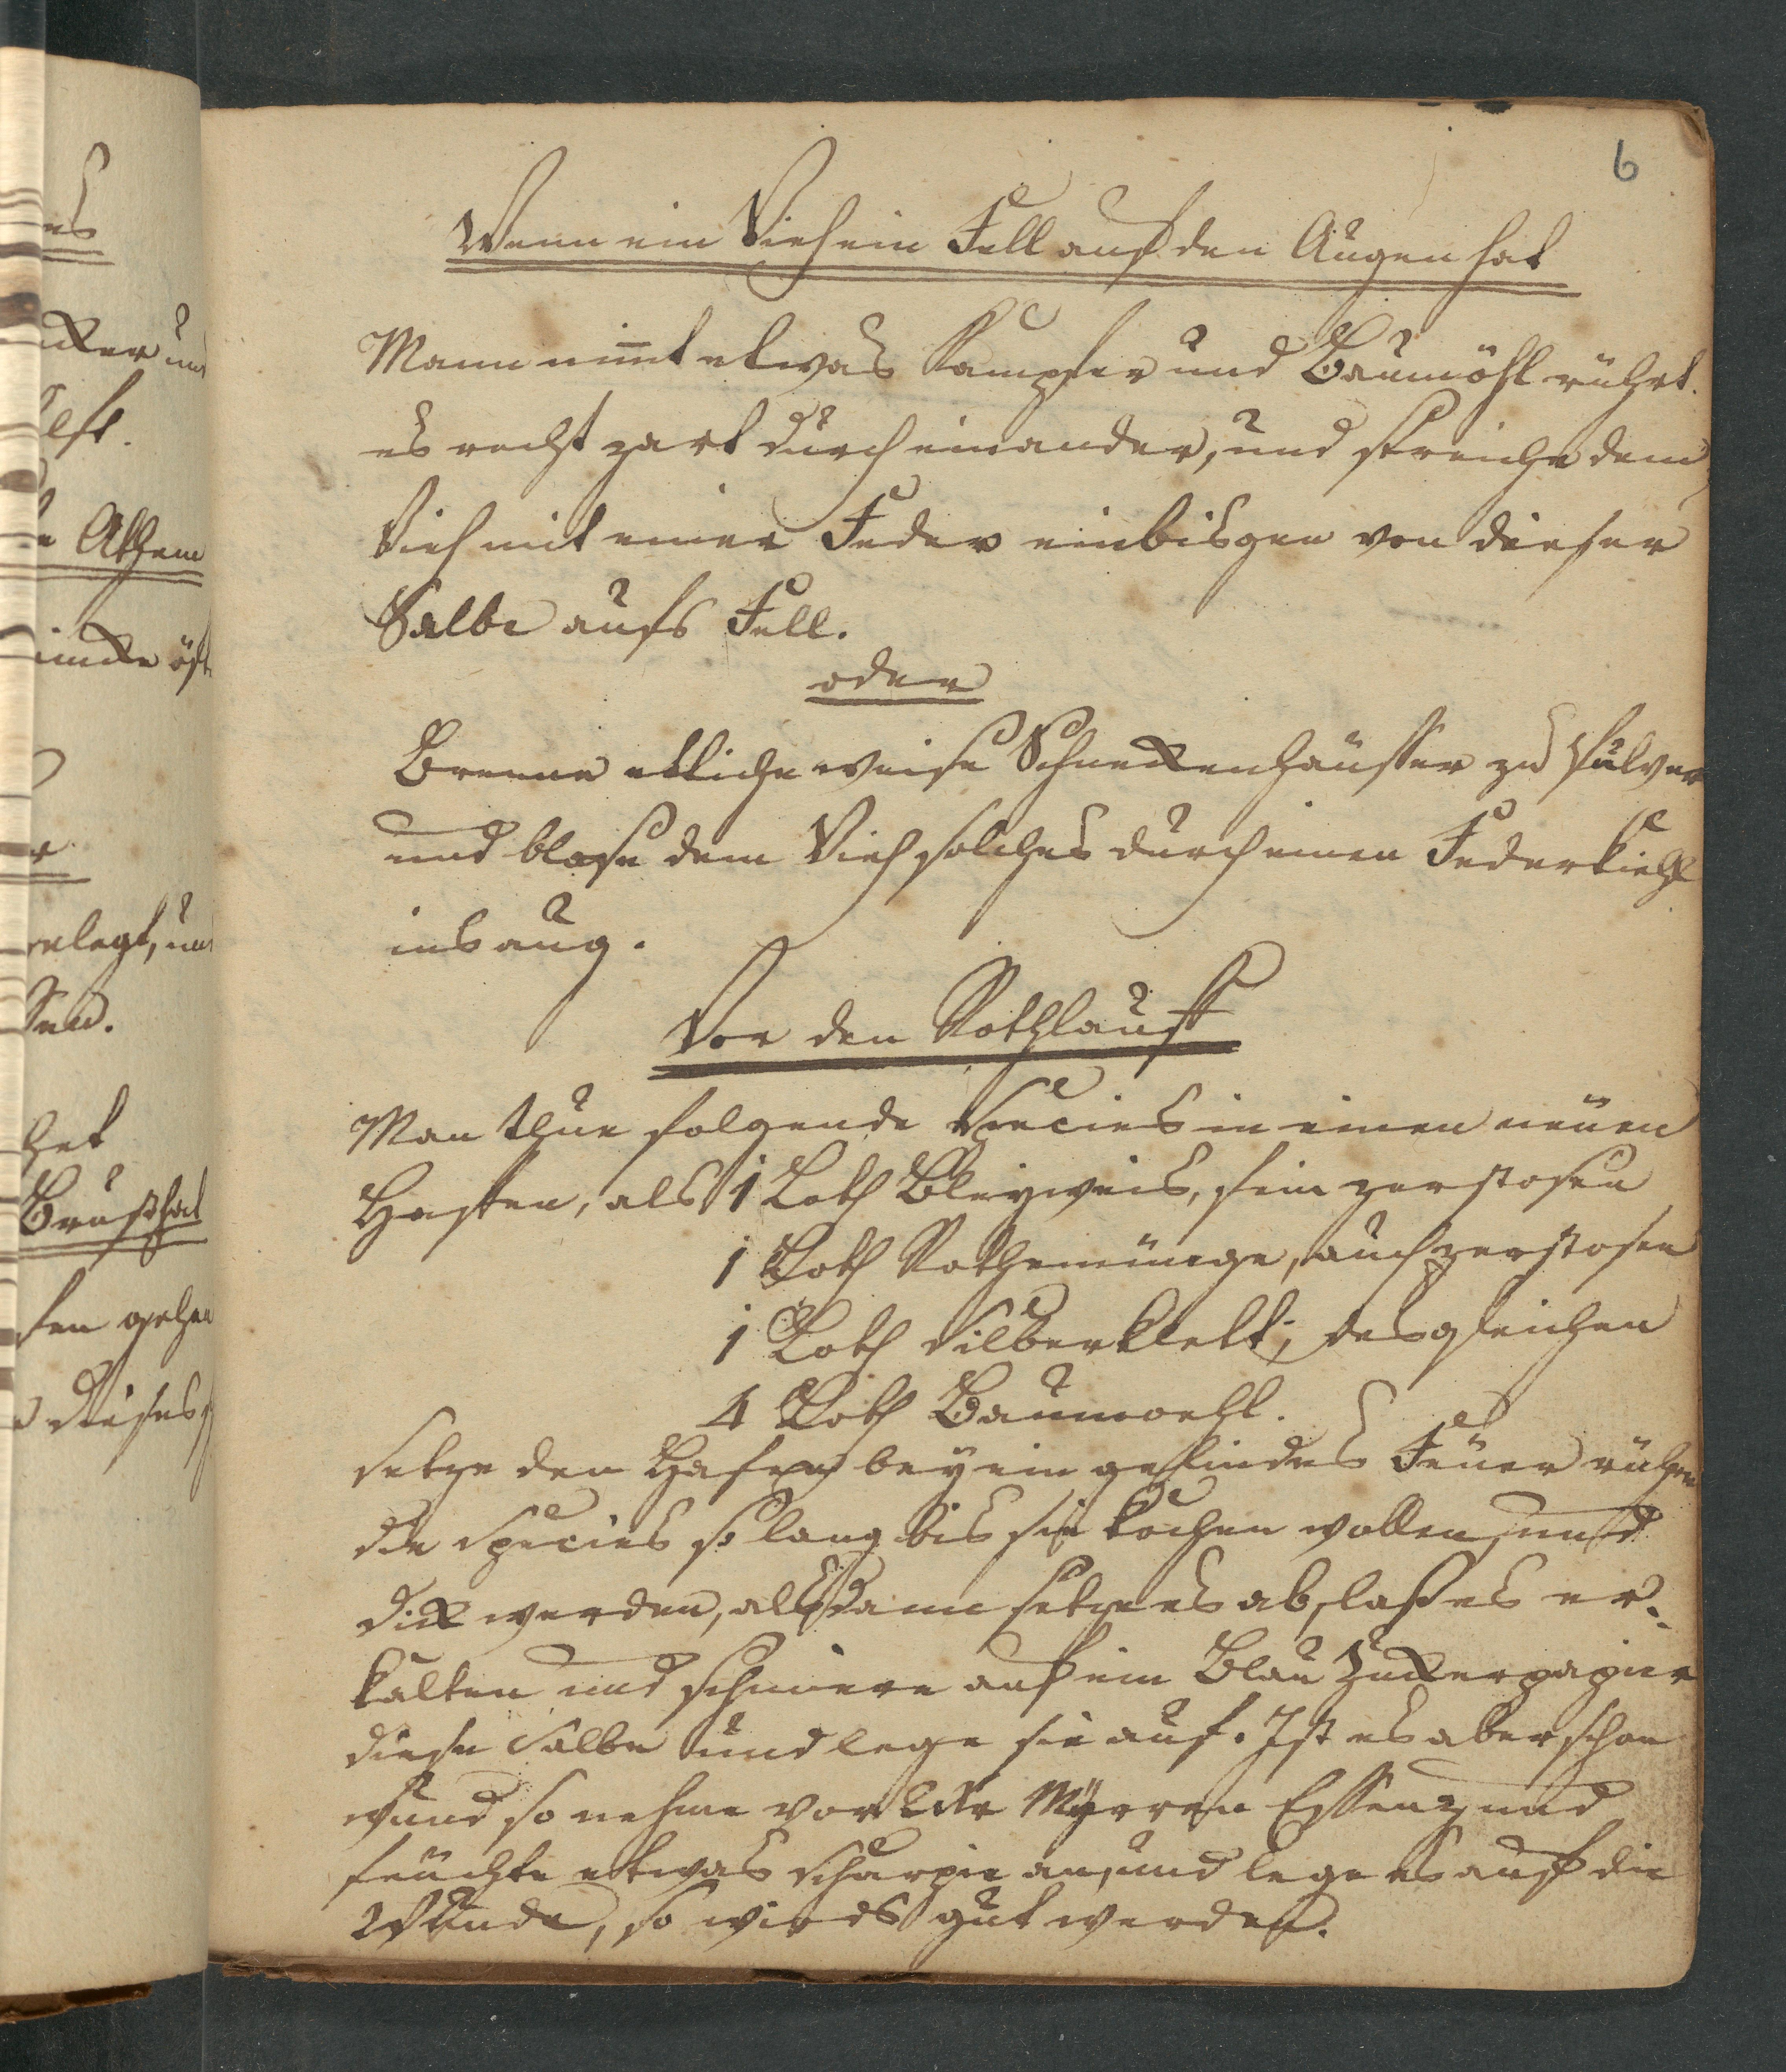 es
6
Wenn ein Vieh ein Fell auf den Augen hat
Mann nimt etwas Kampfer und Baumöhl rührt
es recht zart durch einander, und streiche dem
Vieh mit einer Feder einbisgen von dieser
Salbe aufs Fell.
oder
Brenne etliche weise Schnekenhäusser zu Pulver
und blase dem Vieh solches durch einen Federkiehl
ins aug.
Vor den Rothlauff
Man thue folgende Species in einen neuen
Haffen, als 1 Loth Bleyweis, fein zerstosen
1 Loth Rothemünge, auch zerstosen
1 Loth Silberklett, desgleichen
4 Loth Baumoehl.
setze den Hafen bey ein gelindes Feuer rühre
die Species so lang bis sie kochen wollen, und
dik werden, alsdann setze es ab, laß es er-
kalten und schmiere auf ein Blau Zukerpapier
diese Salbe und lege sie auf. Ist es aber schon
wund so nehme vor 2 Kr Myrren Essenz und
feuchte etwas scharpie an, und lege es auf die
Wunde, so wirds gut werden.
Athem